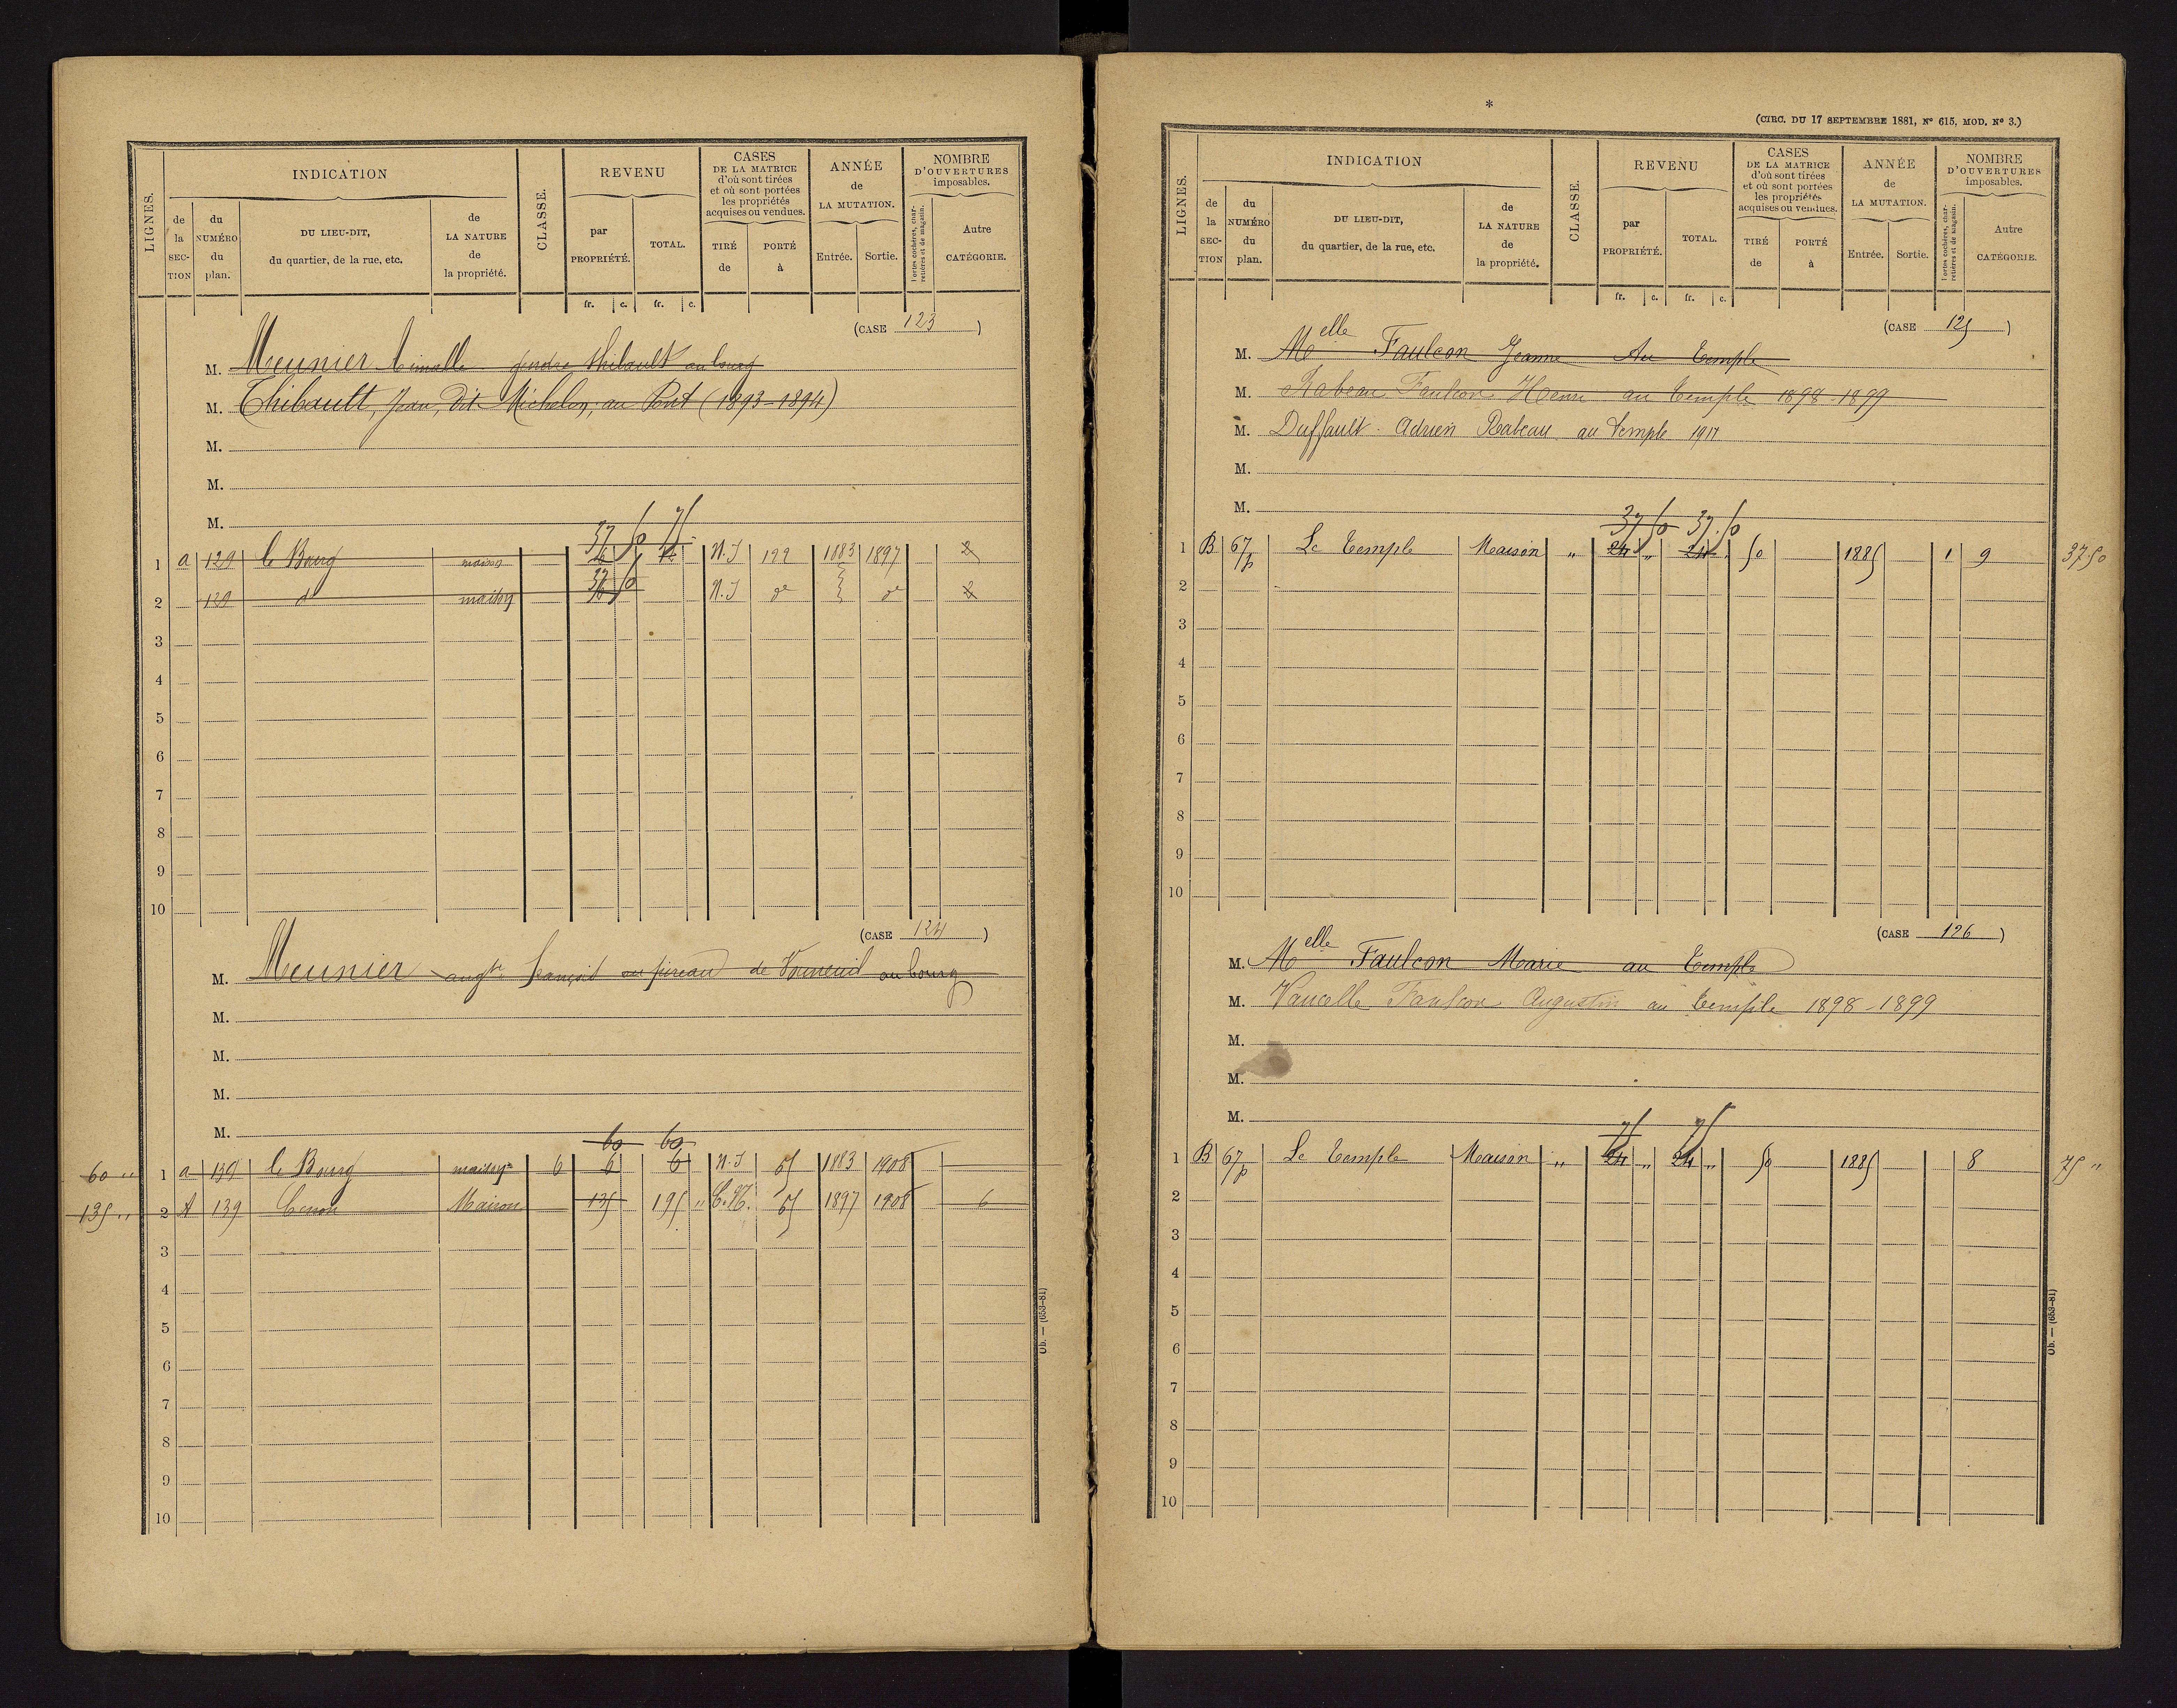 LIGNES.
INDICATION
de la SECTION
du NUMÉRO du plan.
DU LIEU-DIT, du quartier, de la rue, etc.
de LA NATURE de la propriété.
CLASSE.
REVENU
par PROPRIÉTÉ.
TOTAL.
fr. c. fr. c.
CASES DE LA MATRICE d'où sont tirées et où sont portées les propriétés acquises ou vendues.
TIRÉ de
PORTÉ à
ANNÉE de LA MUTATION.
Entrée. Sortie.
NOMBRE D'OUVERTURES imposables.
Portes cochères, charretières et de magasin.
Autre CATÉGORIE.
(CASE 123)
M. Meunier gendre Thibault au bourg
M. Thibault, Jean, dit Michelon, au Pont (1893-1894)
M.
M.
M.
37 50 75
1 a 129 le Bourg maison N.I 122 1883 1897 2
37 50
2 139 d° maison N.I d° d° 2
3
4
5
6
7
8
9
10
(CASE 124)
M. Meunier François de Vouneuil au bourg
M.
M.
M.
M.
60 60
60 " 1 a 139 le Bourg maison 6 6 6 N.I 65 1883 1908
135 " 2 A 139 Cenon Maison 135 195 " C.N. 65 1897 1908 6
3
4
5
6
7
8
9
10
Ob. — (653-81)
*
(CIRC. DU 17 SEPTEMBRE 1881, N° 615, MOD. N° 3.)
LIGNES.
INDICATION
de la SECTION
du NUMÉRO du plan.
DU LIEU-DIT, du quartier, de la rue, etc.
de LA NATURE de la propriété.
CLASSE.
REVENU
par PROPRIÉTÉ.
TOTAL.
fr. c. fr. c.
CASES DE LA MATRICE d'où sont tirées et où sont portées les propriétés acquises ou vendues.
TIRÉ de
PORTÉ à
ANNÉE de LA MUTATION.
Entrée. Sortie.
NOMBRE D'OUVERTURES imposables.
Portes cochères, charretières et de magasin.
Autre CATÉGORIE.
(CASE 125)
M. Melle Faulcon Jeanne Au Temple
M. Rabeau Faulcon Henri au Temple 1898-1899
M. Duffault - Adrien Rabeau au Temple 1911
M.
M.
37 50 37.50
1 B 67p Le Temple Maison " 24 " 24 " 50 1885 1 9 37.50
2
3
4
5
6
7
8
9
10
(CASE 126)
M. Melle Faulcon Marie au Temple
M. Vaucelle Faulcon Augustin au Temple 1898-1899
M.
M.
M.
75 75
1 B 67p Le Temple Maison " 24 " 24 " 50 1885 8 75 "
2
3
4
5
6
7
8
9
10
Ob. — (653-81)